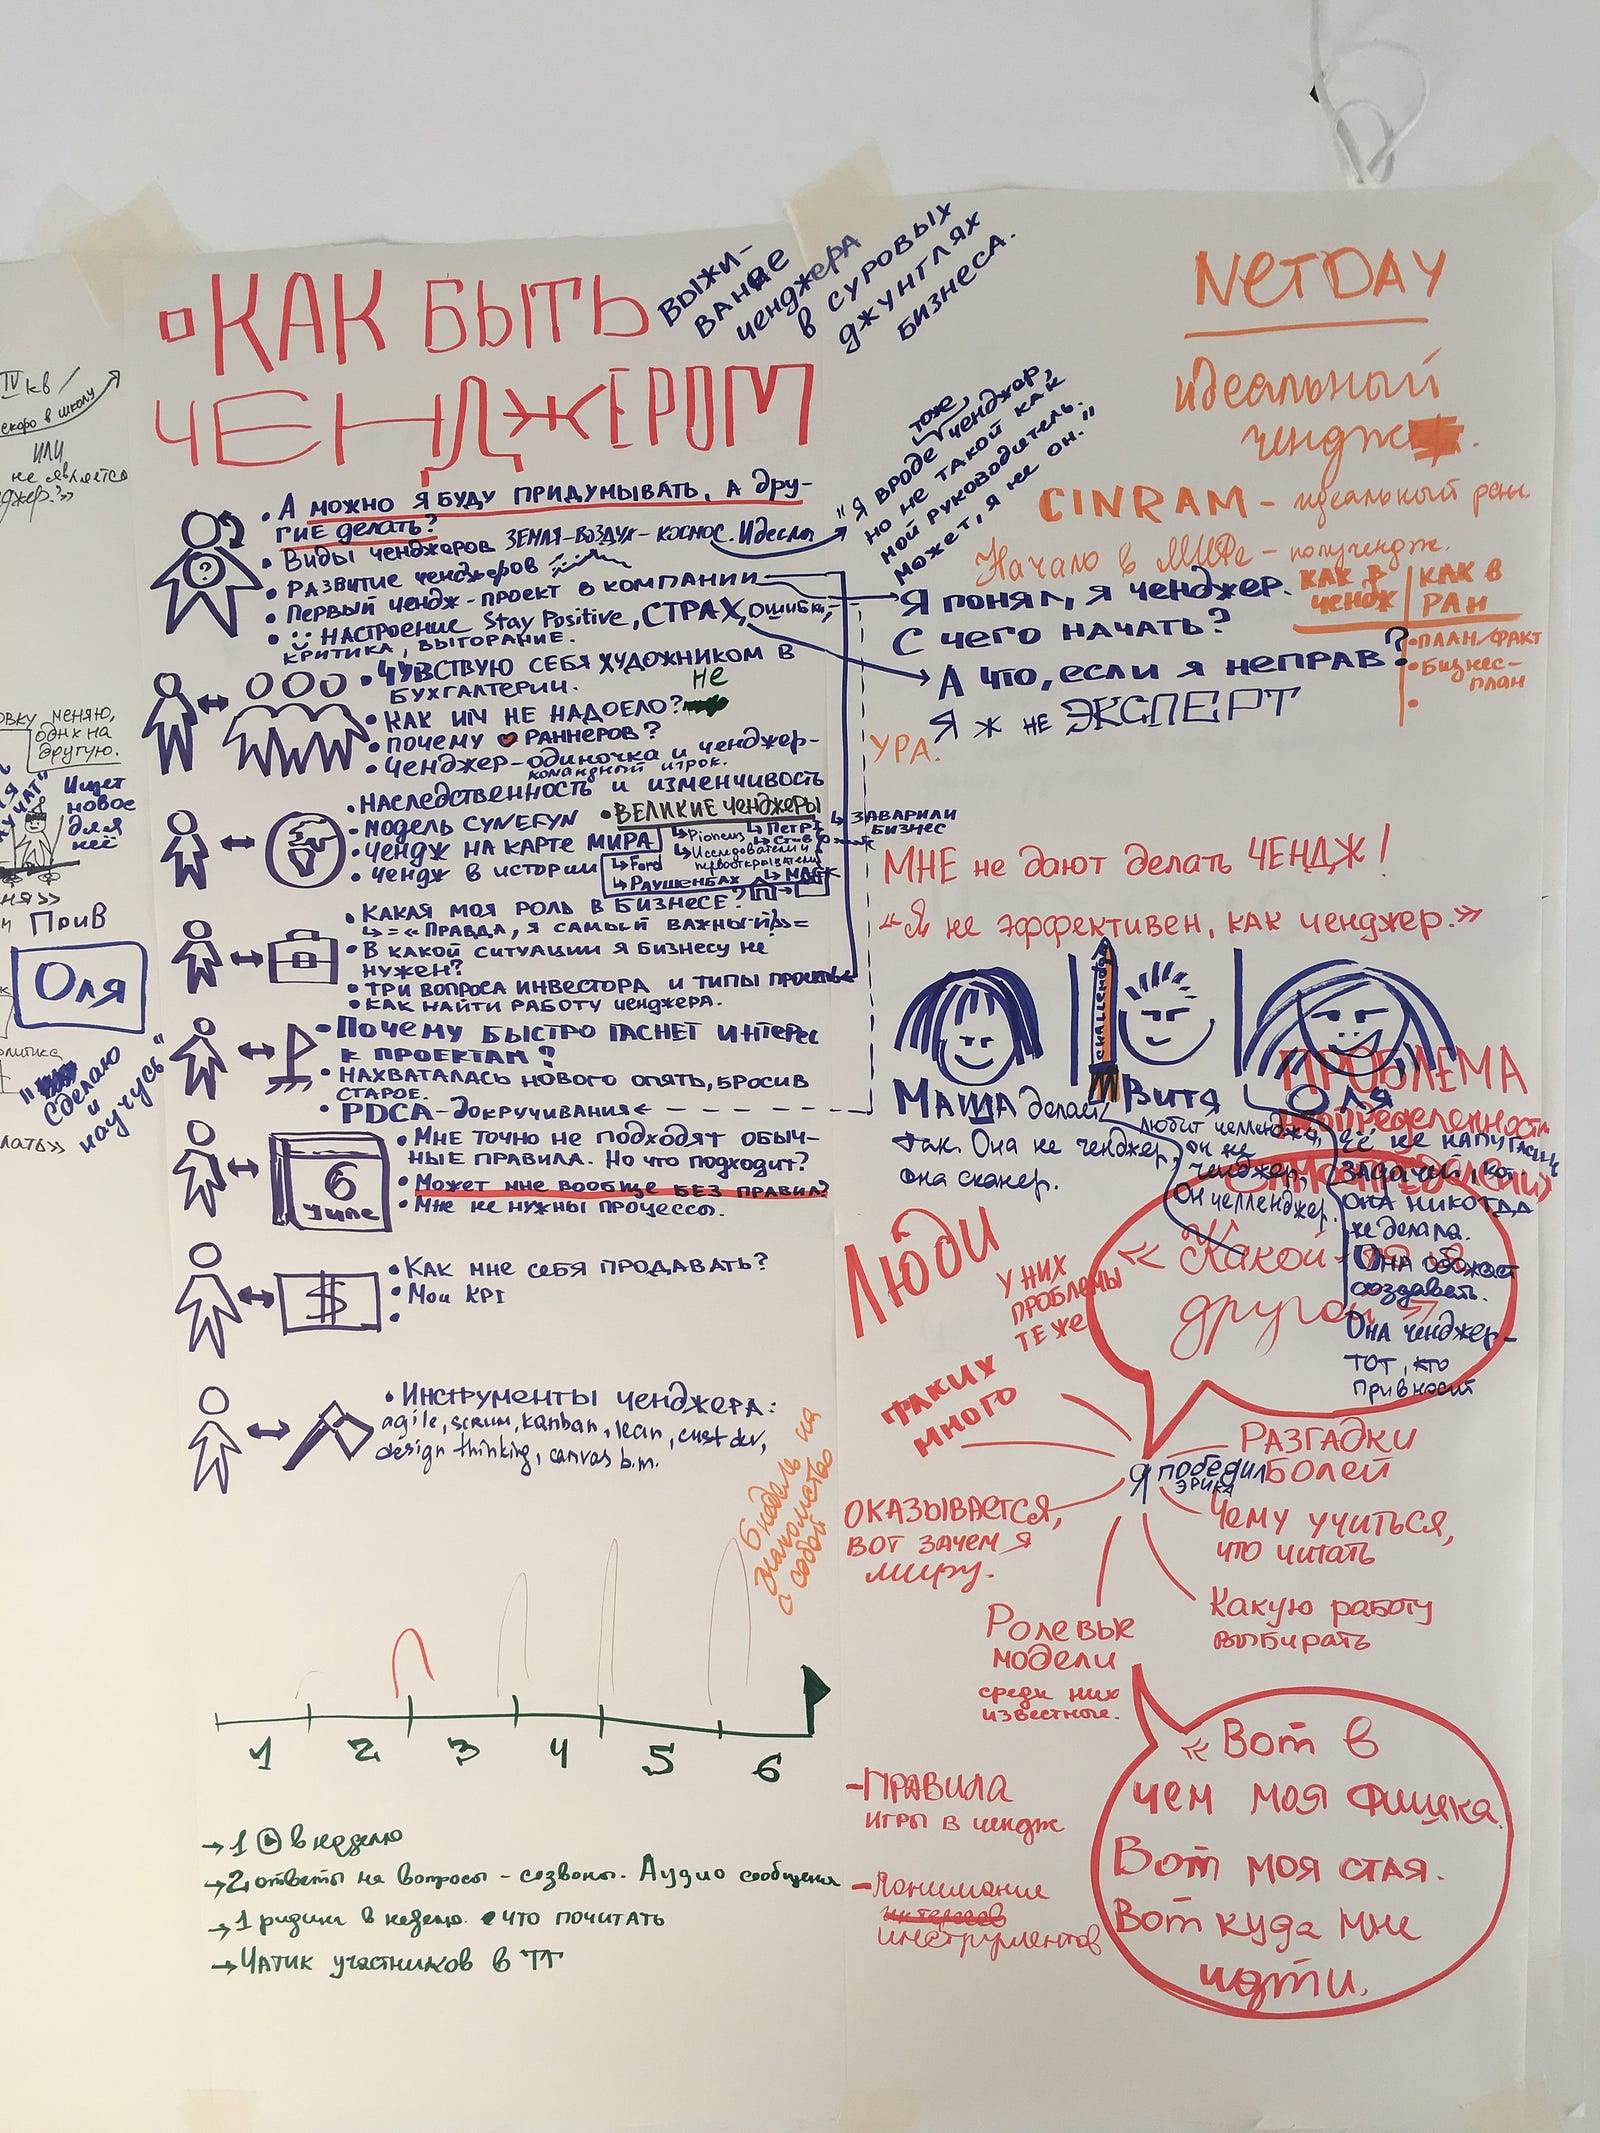 КАК БЫТЬ
ЧЕНДЖЕРОМ
ВЫЖИ-
ВАНИЕ
ченджера
в суровых
джунглях
бизнеса.
NETDAY
идеальный
чендж
CINRAM - идеальный
Начало в МИФе -
• А можно я буду придумывать, а дру-
гие делать?
• Виды ченджеров ЗЕМЛЯ-ВОЗДУХ-КОСМОС. Идеслы
• Развитие ченджеров
• Первый чендж-проект в компании
• Настроение Stay Positive, СТРАХ, ошибки,
критика, выгорание.
"Я вроде тоже, ченджер,
но не такой как
мой руководитель.
Может, я не он."
Я понял, я ченджер.
С чего начать?
А что, если я неправ?
Я ж не ЭКСПЕРТ
УРА.
КАК в
ЧЕНДЖ
КАК В
РАН
• ПЛАН/ФАКТ
• Бизнес-
план
• Чувствую себя художником в
бухгалтерии.
• Как им не надоело? не
• Почему раннеров?
• Ченджер-одиночка и ченджер-
командный игрок.
• Наследственность и изменчивость
• Модель CYNEFYN
• Чендж на карте мира
• Чендж в истории
• ВЕЛИКИЕ ченджеры
Pioneers
Петр I
Исследователи и
первооткрыватели
Ford
Раушенбах
Маск
ЗАВАРИЛИ
БИЗНЕС
• Какая моя роль в бизнесе?
= «Правда, я самый важный?» =
• В какой ситуации я бизнесу не
нужен?
• Три вопроса инвестора и типы
• Как найти работу ченджера.
• Почему быстро гаснет интерес
к проектам?
• Нахваталась нового опять, бросив
старое.
• PDCA-докручивания
6
• Мне точно не подходят обыч-
ные правила. Но что подходит?
• Может мне вообще без правил?
• Мне не нужны процессы.
$
• Как мне себя продавать?
• Мои KPI
• Инструменты ченджера:
agile, scrum, kanban, lean, cust dev,
design thinking, canvas b.m.
6 недель на
знакомство
с собой
1 2 3 4 5 6
→ 1 в неделю
→ 2 ответы на вопросы - созвоны. Аудио сообщения
→ 1 ридинг в неделю. что почитать
→ Чатик участников в ТГ
МНЕ не дают делать ЧЕНДЖ!
«Я не эффективен, как ченджер.»
CHALLENGE
Маша делает
так. Она не ченджер,
она сканер.
Витя
любит челленджи,
он не
ченджер,
он челленджер.
Оля
Её не напугаешь
задачей, кот.
она никогда
не делала.
Она обожает
создавать.
Она ченджер-
тот, кто
привносит
ПРОБЛЕМА
Люди
у них
проблемы
те же
таких
много
« Какой-то я
другой »
Я победил
Эрика
Разгадки
болей
Чему учиться,
что читать
Какую работу
выбирать
Оказывается,
вот зачем я
миру.
Ролевые
модели
среди них
известные.
- Правила
игры в чендж
- Понимание
интересов
инструментов
« Вот в
чем моя фишка.
Вот моя стая.
Вот куда мне
идти.
IV кв /
скоро в школу
или
не является
меняю,
одних на
другую.
Ищет
новое
для
неё
Прив
Оля
"Сделаю
и
научусь"